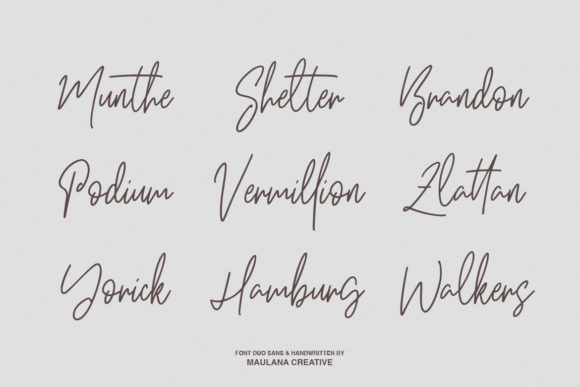 Munthe Shelter Brandon
Podium Vermillion Zlattan
Yorick Hamburg Walkers
FONT DUO SANS & HANDWRITTEN BY
MAULANA CREATIVE